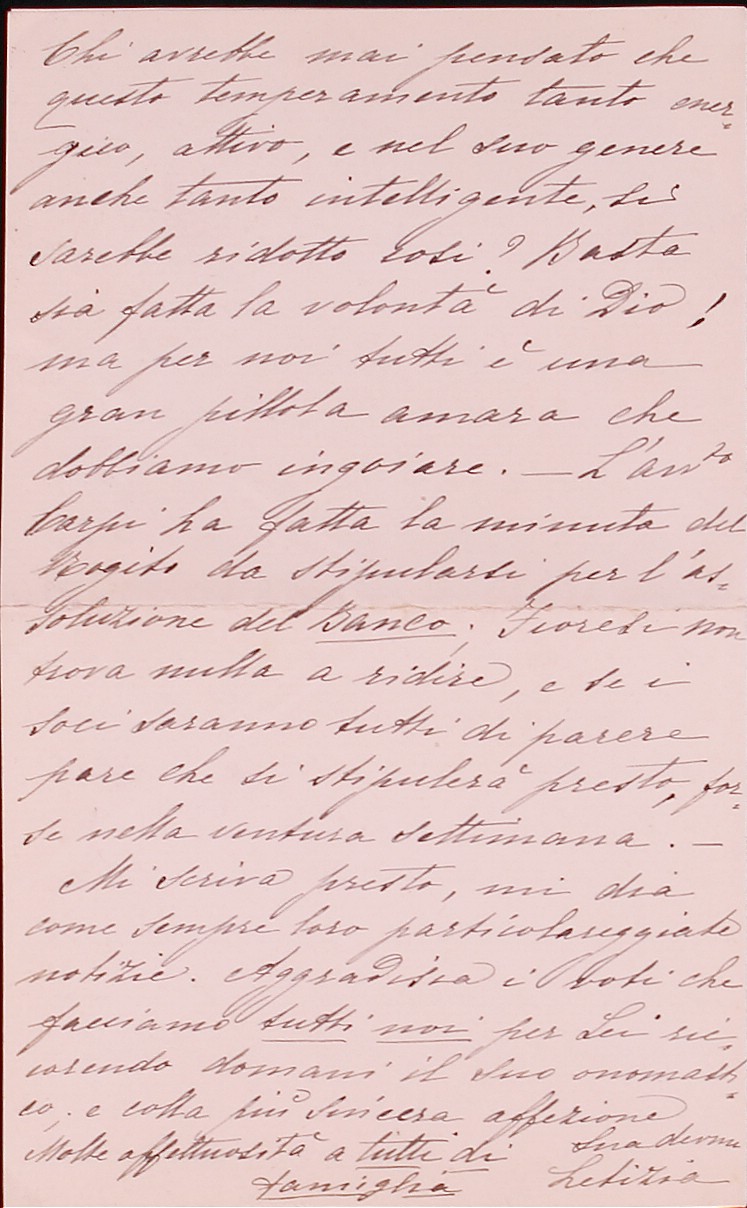 Chi avrebbe mai pensato che
questo temperamento tanto ener-
gico, attivo, e nel suo genere
anche tanto intelligente, si
sarebbe ridotto così? Basta
sia fatta la volontà di Dio!
ma per noi tutti è una
gran pillola amara che
dobbiamo ingoiare. — L'avv.to
Carpi ha fatta la minuta del
Rogito da stipularsi per l'as-
soluzione del Banco; Fioresi non
trova nulla a ridire, e se i
soci saranno tutti di parere
pare che si stipulerà presto, for-
se nella ventura settimana. —
Mi scriva presto, mi dia
come sempre loro particolareggiate
notizie. Aggradisca i voti che
facciamo tutti noi per Lei ric-
corendo domani il suo onomasti-
co, e colla più sincera affezione
Molte affettuosità a tutti di
famiglia
Sua devma
Letizia